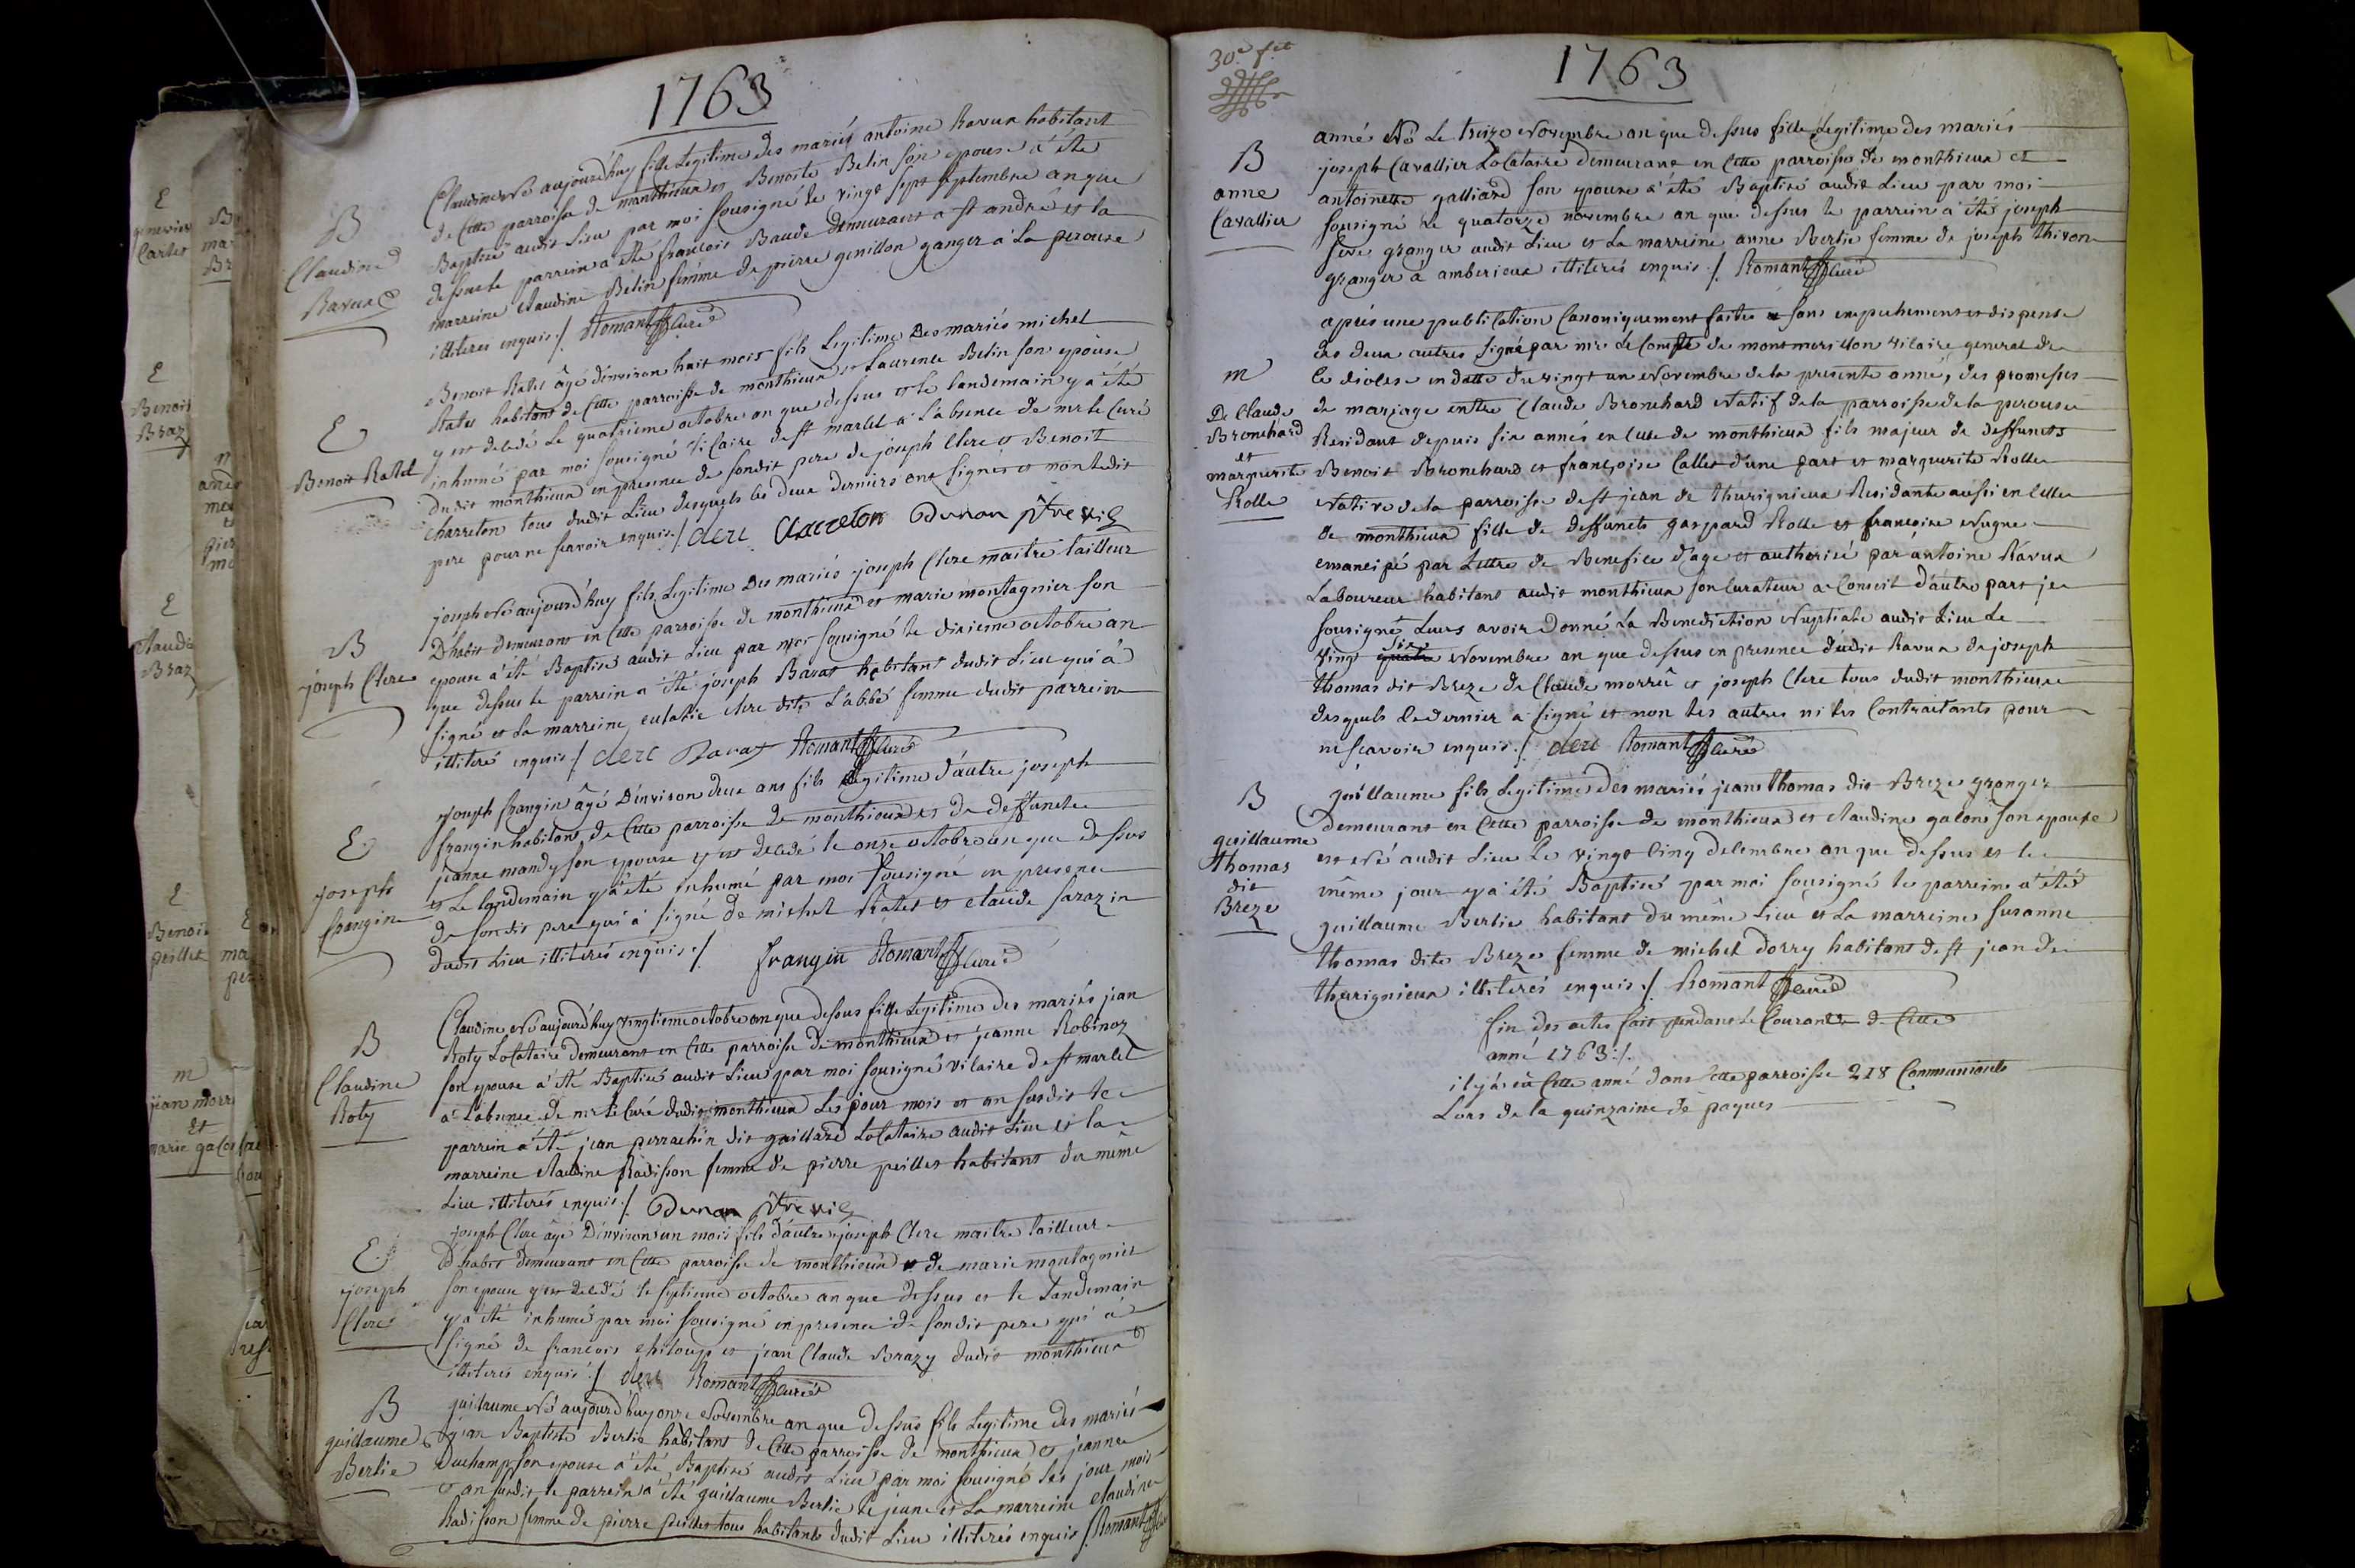 1763
B
Claudine
Ravux
Claudine Né aujourd'huy fille Legitime des mariés antoine Ravux habitant
de Cette parroisse de monthieux et Benoite Belin son epouse a été
Baptisé audit Lieu par moi sousigné le vingt sept septembre an que
dessus le parrein a été francois Baude demeurant a st andré et la
marreine Claudine Belin femme de pierre genillon granger a La perouse
illiterés enquis ./. Romant Curé
E
Benoit Ratel
Benoit Ratel âgé d'environ huit mois fils Legitime Des mariés michel
Ratel habitant de Cette parroisse de monthieux et Laurence Belin son epouse
y est decedé Le quatrieme octobre an que dessus et le landemain y a été
inhumé par moi sousigné Vicaire de st marcel a L'absence de mr le Curé
dudit monthieux en presence de sondit pere de joseph Clerc et Benoit
Charreton tous dudit Lieu desquels les deux derniers ont signés et non ledit
pere pour ne scavoir enquis ./. Clerc Charreton Dunan ptre vic
B
joseph Clerc
joseph Né aujourd'huy fils Legitime Des mariés joseph Clerc maitre tailleur
D'habit demeurant en Cette parroisse de monthieux et marie montagnier son
epouse a été Baptisé audit Lieu par moi sousigné le dixieme octobre an
que dessus le parrein a été joseph Bavat habitant dudit Lieu qui a
signé et La marreine eulalie clerc dite L'abbé femme dudit parrein
illiteré enquis ./. Clerc Bavat Romant Curé
E
joseph
frangin
joseph frangin âgé D'environ deux ans fils Legitime d'autre joseph
frangin habitant de Cette parroisse de monthieux et de deffuncte
jeanne mandy son epouse y est decedé le onze octobre an que dessus
et Le landemain y a été inhumé par moi sousigné en presence
de sondit pere qui a signé de michel Ratel et claude sarazin
dudit Lieu illiterés enquis ./. frangin Romant Curé
B
Claudine
Roty
Claudine Né aujourd'huy vingtieme octobre an que dessus fille Legitime des mariés jean
Roty Locataire demeurant en Cette parroisse de monthieux et jeanne Robinoz
son epouse a été Baptisé audit Lieu par moi sousigné vicaire de st marcel
a L'absence de mr le Curé dudit monthieux Les jour mois et an susdit le
parrein a été jean perrachin dit gaillard Locataire audit Lieu et la
marreine Claudine Radisson femme de pierre peillet habitant du même
Lieu illiterés enquis ./. Dunan ptre vic
E
joseph
Clerc
joseph Clerc âgé D'environ un mois fils d'autre joseph Clerc maitre tailleur
D'habit demeurant en Cette parroisse de monthieux et de marie montagnier
son epouse y est decedé le septieme octobre an que dessus et le Landemain
y a été inhumé par moi sousigné en presence de sondit pere qui a
signé de francois chiloup et jean Claude Brazy dudit monthieux
illiterés enquis ./. Clerc Romant Curé
B
guillaume
Bertie
guillaume Né aujourd'huy onze Novembre an que dessus fils Legitime des mariés
jean Baptiste Bertie habitant de Cette parroisse de monthieux et jeanne
Duchamp son epouse a été Baptisé audit Lieu par moi sousigné les jour mois
et an susdit le parrein a été guillaume Bertie le jeune et La marreine claudine
Radisson femme de pierre peillet tous habitants dudit Lieu illiterés enquis ./. Romant
30e ft
1763
B
anne
Cavallier
anne Né Le treize Novembre an que dessus fille Legitime des mariés
joseph Cavallier Locataire demeurant en Cette parroisse de monthieux et
antoinette galliard son epouse a été Baptisé audit Lieu par moi
sousigné le quatorze novembre an que dessus le parrein a été joseph
seve granger audit Lieu et La marreine anne Bertie femme de joseph thivon
granger a amberieux illiterés enquis ./. Romant Curé
m
De Claude
Bronchard
et
marguerite
Rolle
après une publication Canoniquement faite sans empechement et dispense
des deux autres signé par mr Le Comte de montmorillon vicaire general de
ce diocese en datte du vingt un Novembre de la presente anné, des promesses
de mariage entre Claude Bronchard Natif de la parroisse de la perouse
Residant depuis six annés en celle de monthieux fils majeur de deffuncts
Benoit Bronchard et françoise Callet d'une part et marguerite Rolle
Native de la parroisse de st jean de thurignieux Residante aussi en celle
de monthieux fille de deffuncts gaspard Rolle et francoise Nugue
emancipé par Lettre de Benefice d'age et authorisé par antoine Ravux
Laboureur habitant audit monthieux son Curateur a Conseil d'autre part je
sousigné Leurs avoir Donné La Benediction Nuptiale audit Lieu Le
vingt quatre six Novembre an que dessus en presence dudit Ravux de joseph
thomas dit Breze de Claude morrû et joseph Clerc tous dudit monthieux
desquels le dernier a signé et non les autres ni les Contractants pour
ne scavoir enquis ./. Clerc Romant Curé
B
guillaume
thomas
dit
Breze
guillaume fils Legitime des mariés jean thomas dit Breze granger
demeurant en Cette parroisse de monthieux et claudine galon son epouse
est Né audit Lieu Le vingt Cinq decembre an que dessus et le
même jour y a été Baptisé par moi sousigné le parrein a été
guillaume Bertie habitant du même Lieu et La marreine susanne
thomas dite Breze femme de michel dorry habitant de st jean de
thurignieux illiterés enquis ./. Romant Curé
fin des actes fait pendant le Courant de Cette
anné 1763 ./.
il y a eu Cette anné dans cette parroisse 218 Communients
Lors de la quinzaine de paques